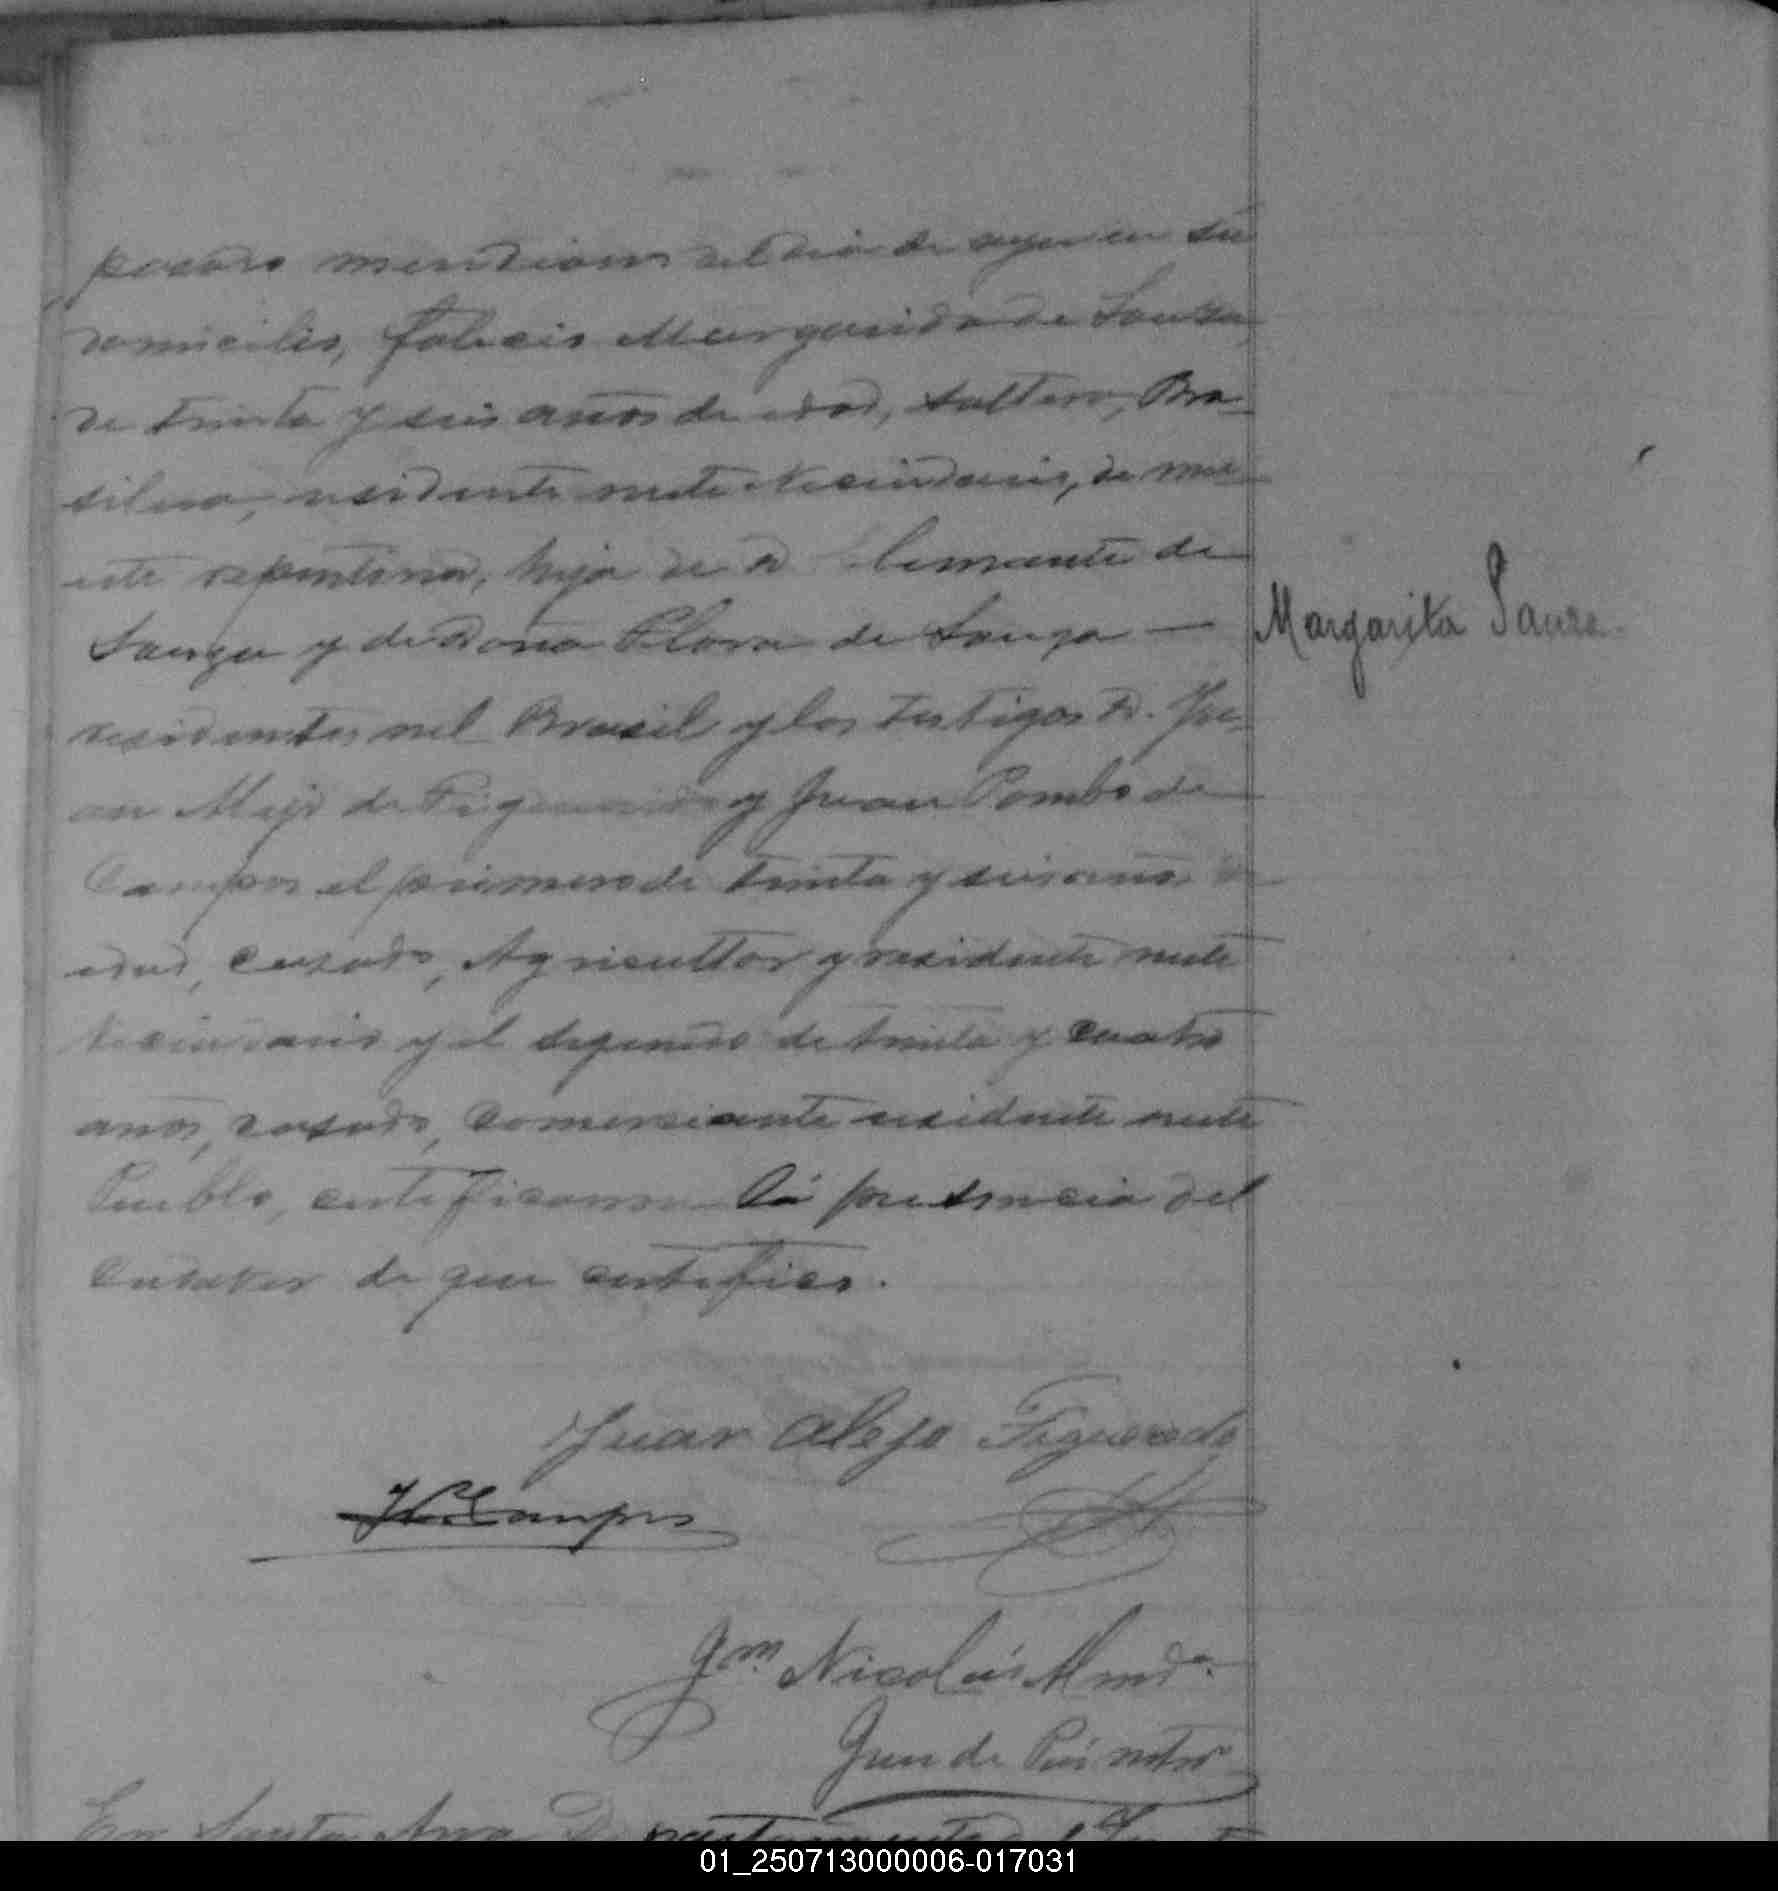 pasado meridiano del dia de ayer en su
domicilio, falecio Margarida de Souza,
de trinta y seis años de edad, soltera, Bra-
silera, residente neste Vecindario, de mu-
erte repentina, hija de D Clemente de
Souza y de Dona Flora de Souza —
residentes nel Brasil y los testigos D. Ju-
an Alejo de Figueredo y Juan Pombo de
Campos el primero de trinta y seis años de
edad, casado, Agricultor y residente neste
Vecindario y el segundo de trinta y cuatro
anos, casado, Comerciante residente neste
Pueblo, certificaron la presencia del
Cadaver de que certifico.
Margarita Sauza
Juan Alejo Figueredo
Campos
Nicolás
Juez de Paz
En Santa Ana Departamento del
01_250713000006-017031